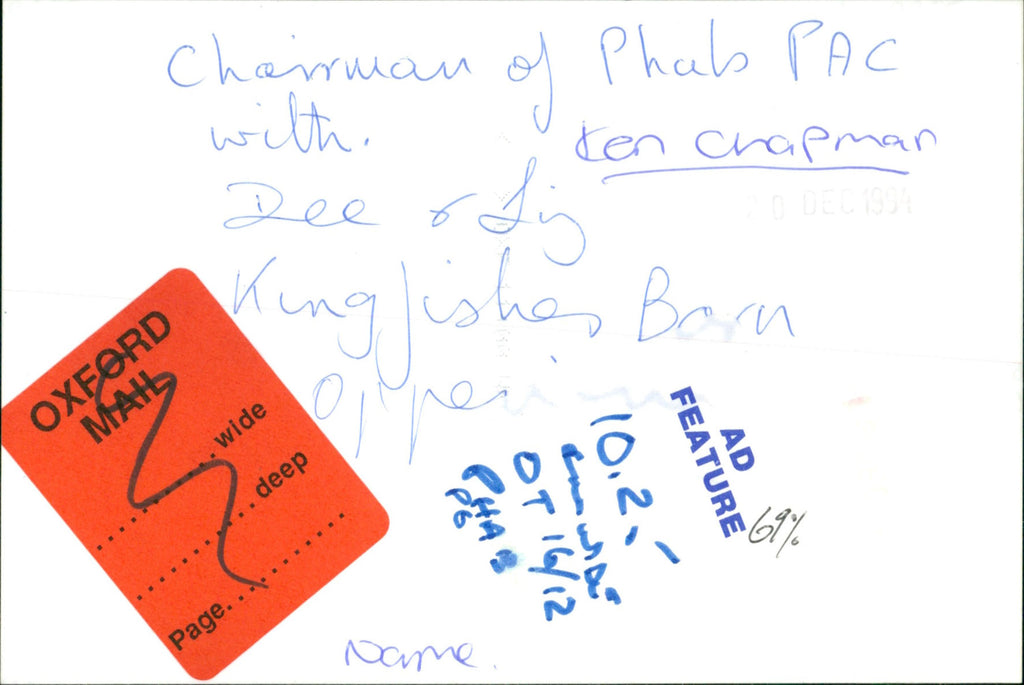 Chairman of Phabs PAC
with.
Ken Chapman
Dee & Liz
20 DEC 1994
Kingfisher Barn
OXFORD
MAIL
wide
deep
Page
AD
FEATURE
69%
10.2
OT 16/12
P6
Name.